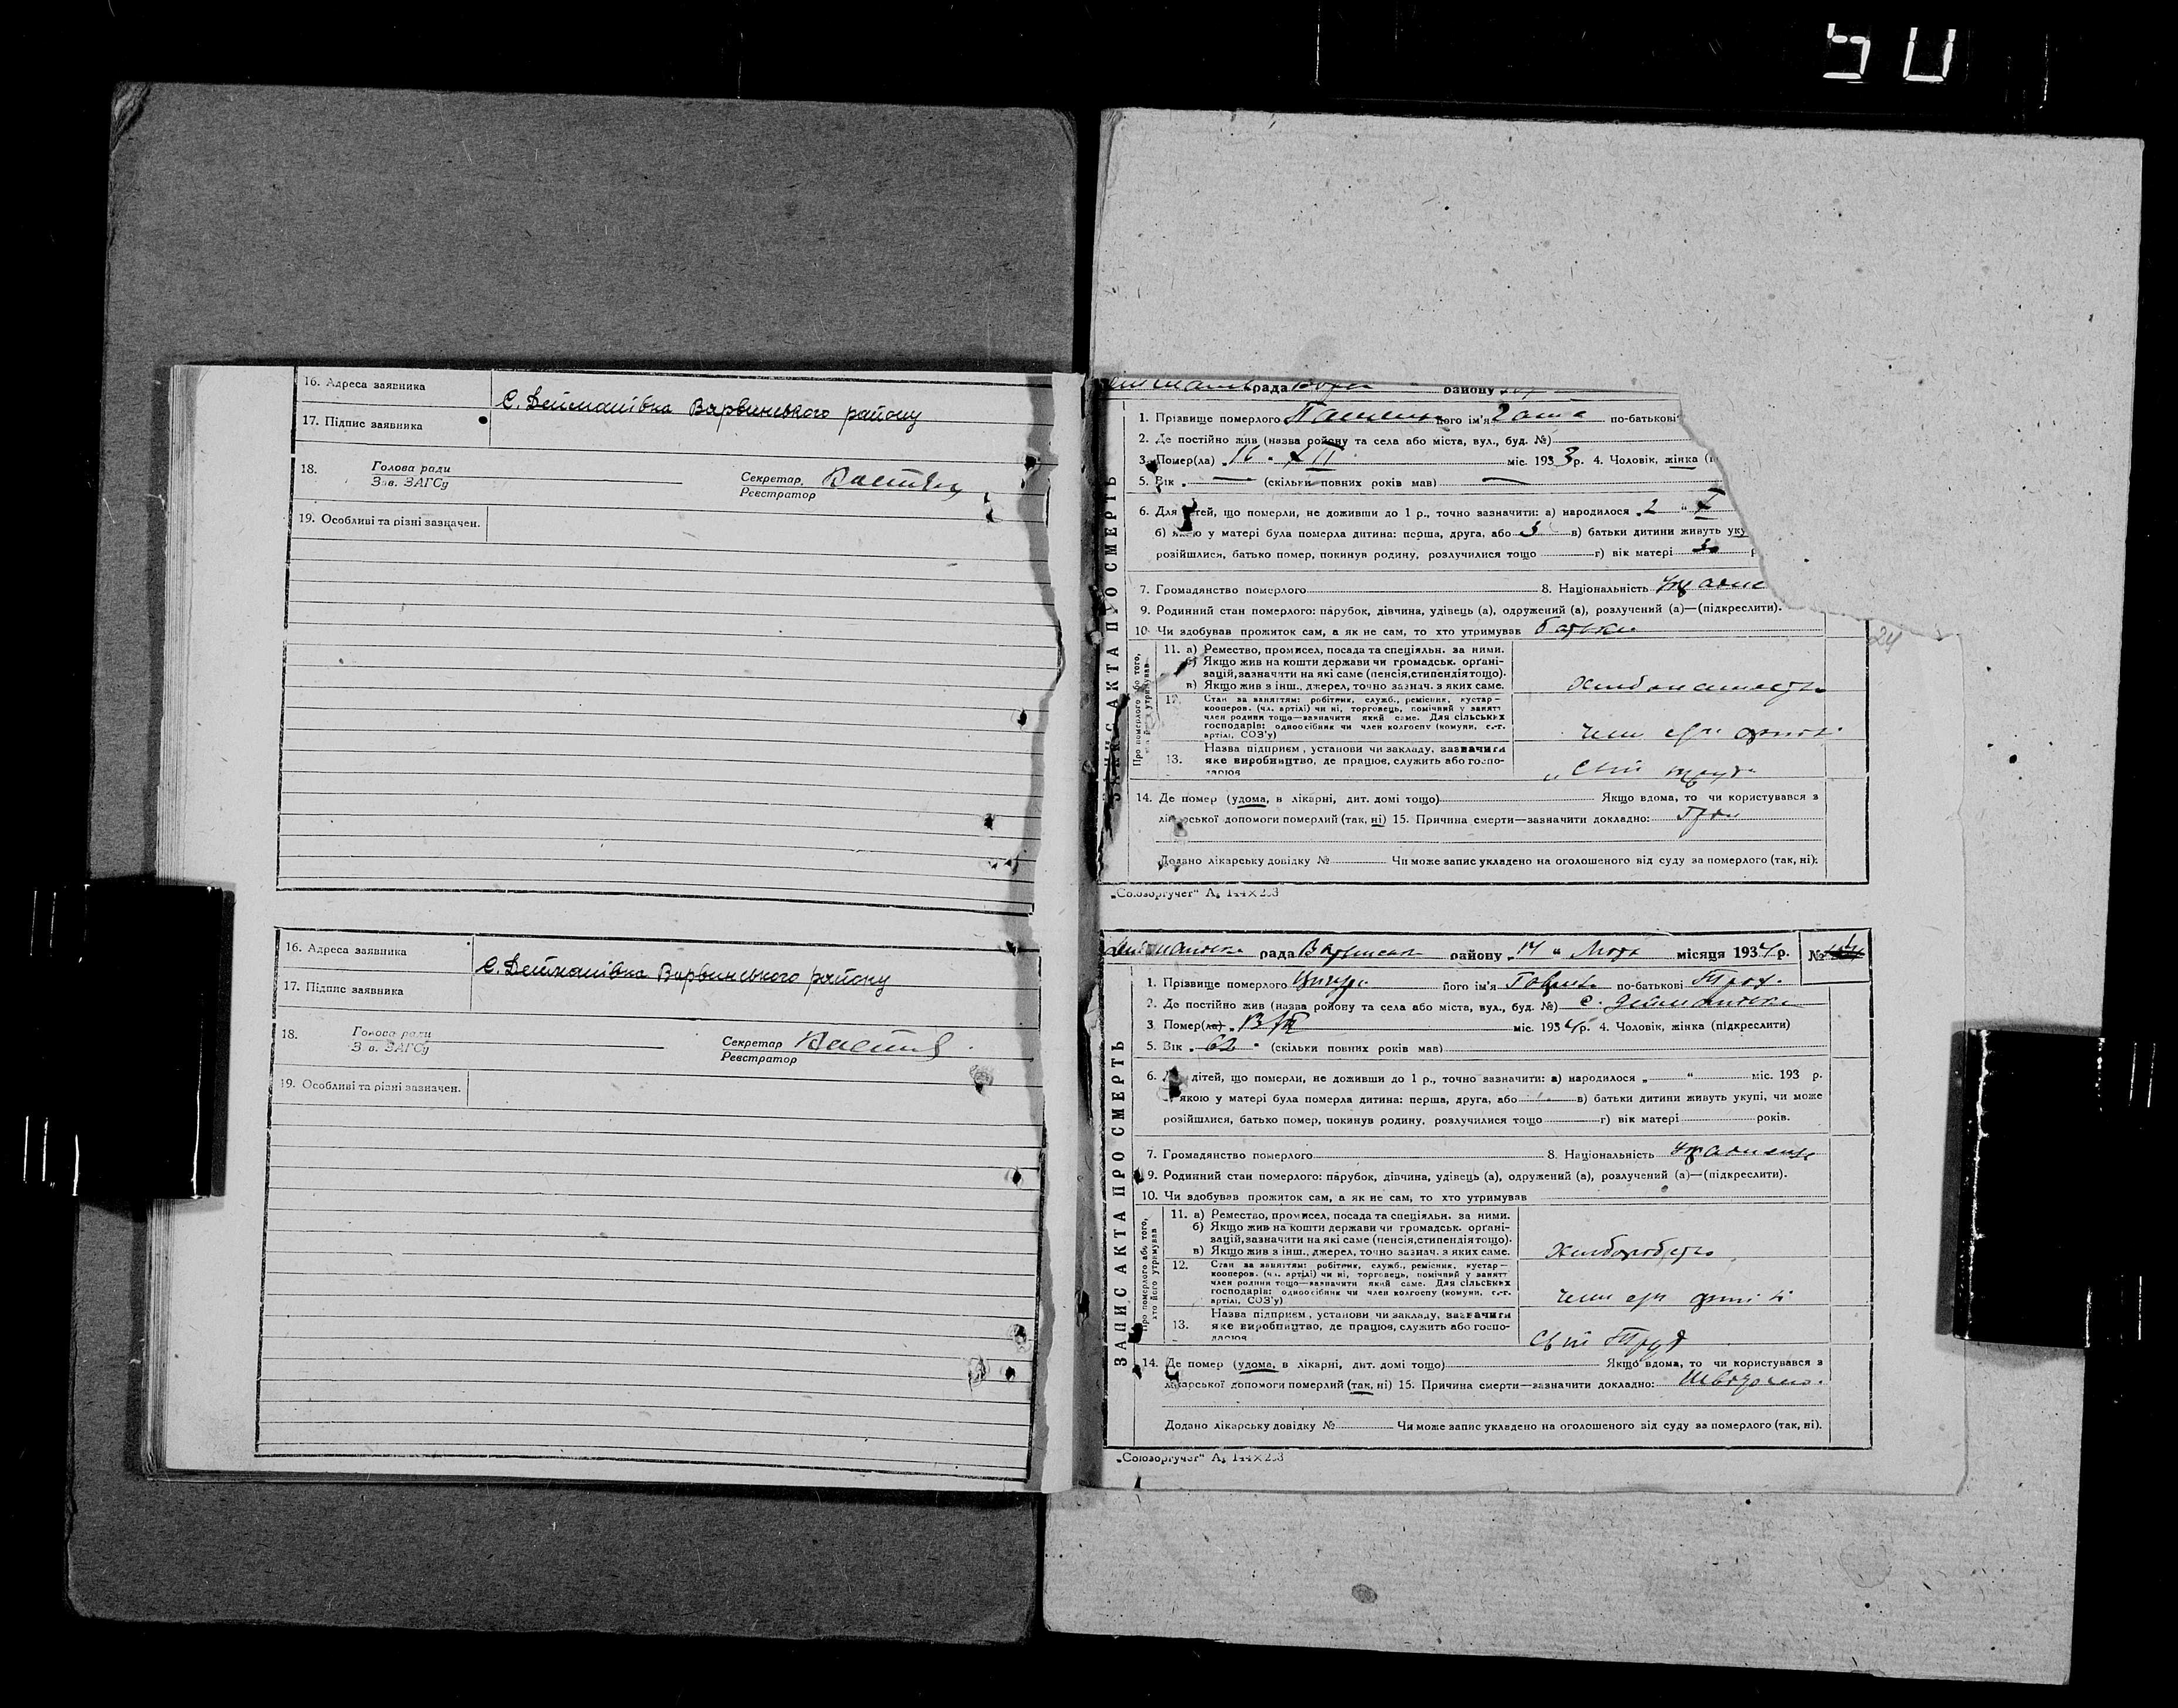 50
16. Адреса заявника
с. Дейманівка Варвинського району
17. Підпис заявника
18. Голова ради
Зав. ЗАГСу
Секретар
Реєстратор
19. Особливі та різні зазначен.
16. Адреса заявника
с. Дейманівка Варвинського району
17. Підпис заявника
18. Голова ради
Зав. ЗАГСу
Секретар
Реєстратор
19. Особливі та різні зазначен.
рада району
ЗАПИС АКТА ПРО СМЕРТЬ
1. Прізвище померлого його ім'я по-батькові
2. Де постійно жив (назва району та села або міста, вул., буд. №)
3. Помер(ла) „16" XII міс. 1933 р. 4. Чоловік, жінка
5. Вік — (скільки повних років мав) —
6. Для дітей, що померли, не доживши до 1 р., точно зазначити: а) народилося „2 " X
б) якою у матері була померла дитина: перша, друга, або 3 в) батьки дитини живуть
розійшлися, батько помер, покинув родину, розлучилися тощо г) вік матері 30
7. Громадянство померлого 8. Національність
9. Родинний стан померлого: парубок, дівчина, удівець (а), одружений (а), розлучений (а)—(підкреслити).
10. Чи здобував прожиток сам, а як не сам, то хто утримував батьки
24
Про померлого або того, хто його утримував
11. а) Ремество, промисел, посада та спеціяльн. за ними.
б) Якщо жив на кошти держави чи громадськ. органі-
зацій, зазначити на які саме (пенсія, стипендія тощо).
в) Якщо жив з інш. джерел, точно зазнач. з яких саме.
12. Стан за заняттям: робітник, служб., ремісник, кустар—
кооперов. (чл. артілі) чи ні, торговець, помічний у занятт
член родини тощо—зазначити який саме. Для сільських
господарів: одноосібник чи член колгоспу (комуни, с.-г.
артілі, СОЗ'у)
13. Назва підприєм., установи чи закладу, зазначити
яке виробництво, де працює, служить або госпо-
дарює
14. Де помер (удома, в лікарні, дит. домі тощо) Якщо вдома, то чи користувався з
лікарської допомоги померлий (так, ні) 15. Причина смерти—зазначити докладно:
Додано лікарську довідку № Чи може запис укладено на оголошеного від суду за померлого (так, ні).
„Союзоргучет" А₅ 144×203
рада району „14" місяця 1934 р. №
ЗАПИС АКТА ПРО СМЕРТЬ
1. Прізвище померлого його ім'я по-батькові
2. Де постійно жив (назва району та села або міста, вул., буд. №) с. Дейманівка
3. Помер(ла) міс. 1934 р. 4. Чоловік, жінка (підкреслити)
5. Вік „62" (скільки повних років мав)
6. Для дітей, що померли, не доживши до 1 р., точно зазначити: а) народилося „ " міс. 193 р.
якою у матері була померла дитина: перша, друга, або в) батьки дитини живуть укупі, чи може
розійшлися, батько помер, покинув родину, розлучилися тощо г) вік матері років.
7. Громадянство померлого 8. Національність українець
9. Родинний стан померлого: парубок, дівчина, удівець (а), одружений (а), розлучений (а)—(підкреслити).
10. Чи здобував прожиток сам, а як не сам, то хто утримував
Про померлого або того, хто його утримував
11. а) Ремество, промисел, посада та спеціяльн. за ними.
б) Якщо жив на кошти держави чи громадськ. органі-
зацій, зазначити на які саме (пенсія, стипендія тощо).
в) Якщо жив з інш. джерел, точно зазнач. з яких саме.
Хлиборобство
12. Стан за заняттям: робітник, служб., ремісник, кустар—
кооперов. (чл. артілі) чи ні, торговець, помічний у занятт
член родини тощо—зазначити який саме. Для сільських
господарів: одноосібник чи член колгоспу (комуни, с.-г.
артілі, СОЗ'у)
13. Назва підприєм., установи чи закладу, зазначити
яке виробництво, де працює, служить або госпо-
дарює
Труд
14. Де помер (удома, в лікарні, дит. домі тощо) Якщо вдома, то чи користувався з
лікарської допомоги померлий (так, ні) 15. Причина смерти—зазначити докладно:
Додано лікарську довідку № Чи може запис укладено на оголошеного від суду за померлого (так, ні).
„Союзоргучет" А₅ 144×203